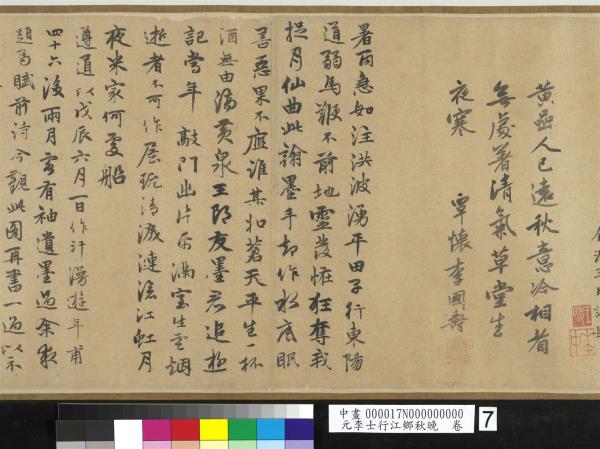 黃壺人已遠秋意冷相看
無處著清氣草堂生
夜寒 覃懷李國壽
暑雨急如注洪波湧平田子行東陽
道弱馬鞭不前地靈發怪狂奪我
捉月仙由此翰墨手却作水底眠
善惡果不應誰其扣蒼天平生一杯
酒無由黃泉王郎友墨君追
記當年敲門出片紙滿室生雲烟
逝者不可作展玩清淚漣滄江虹月
夜米家何處船
遵道以戊辰六月一日作汗漫遊年甫
四十六後兩月客有袖遺墨過余
題為賦前詩今觀此圖再書一過以示
中畫 000017N000000000
元李士行江鄉秋晚 卷
7